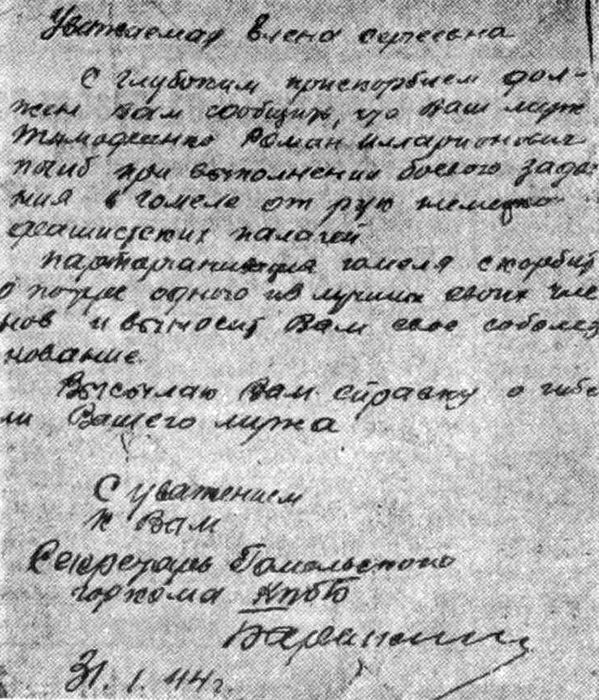 Уважаемая Елена Сергеевна
С глубоким прискорблем дол-
жен Вам сообщить, что Ваш муж
Тимофеенко Роман Илларионович
погиб при выполнении боевого зада-
ния в Гомеле от рук немецко
фашистских палачей
Парторганизация Гомеля скорбит
о потере одного из лучших своих чле
нов и выносит Вам свое соболез
нование.
Высылаю Вам справку о гибе
ли Вашего мужа
С уважением
к Вам
Секретарь Гомельского
горкома КПбБ
31.1.44г.